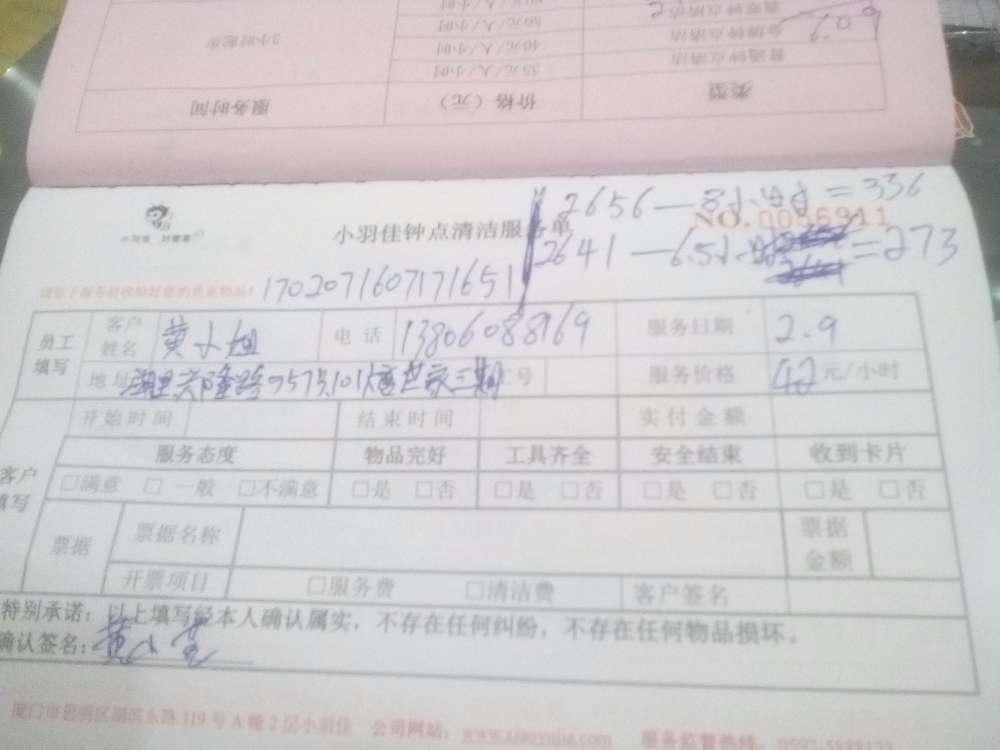 3小时起步
40元/人/小时
金牌钟点清洁
35元/人/小时
普通钟点清洁
服务时间
价格（元）
类型
2656—8小时=336
小羽佳钟点清洁服务单
NO.
2641—6.5小时=273
1702071607171651
员工填写
客户姓名
黄小姐
电话
13806088169
服务日期
2.9
地址
服务价格
42元/小时
客户填写
开始时间
结束时间
实付金额
服务态度
物品完好
工具齐全
安全结束
收到卡片
□满意 □一般 □不满意
□是 □否
□是 □否
□是 □否
□是 □否
票据
票据名称
票据金额
开票项目
□服务费 □清洁费
客户签名
特别承诺：以上填写经本人确认属实，不存在任何纠纷，不存在任何物品损坏。
确认签名：黄小
厦门市思明区湖滨东路319号A幢2层小羽佳 公司网站：www.xiaoyujia.com 服务监督热线：